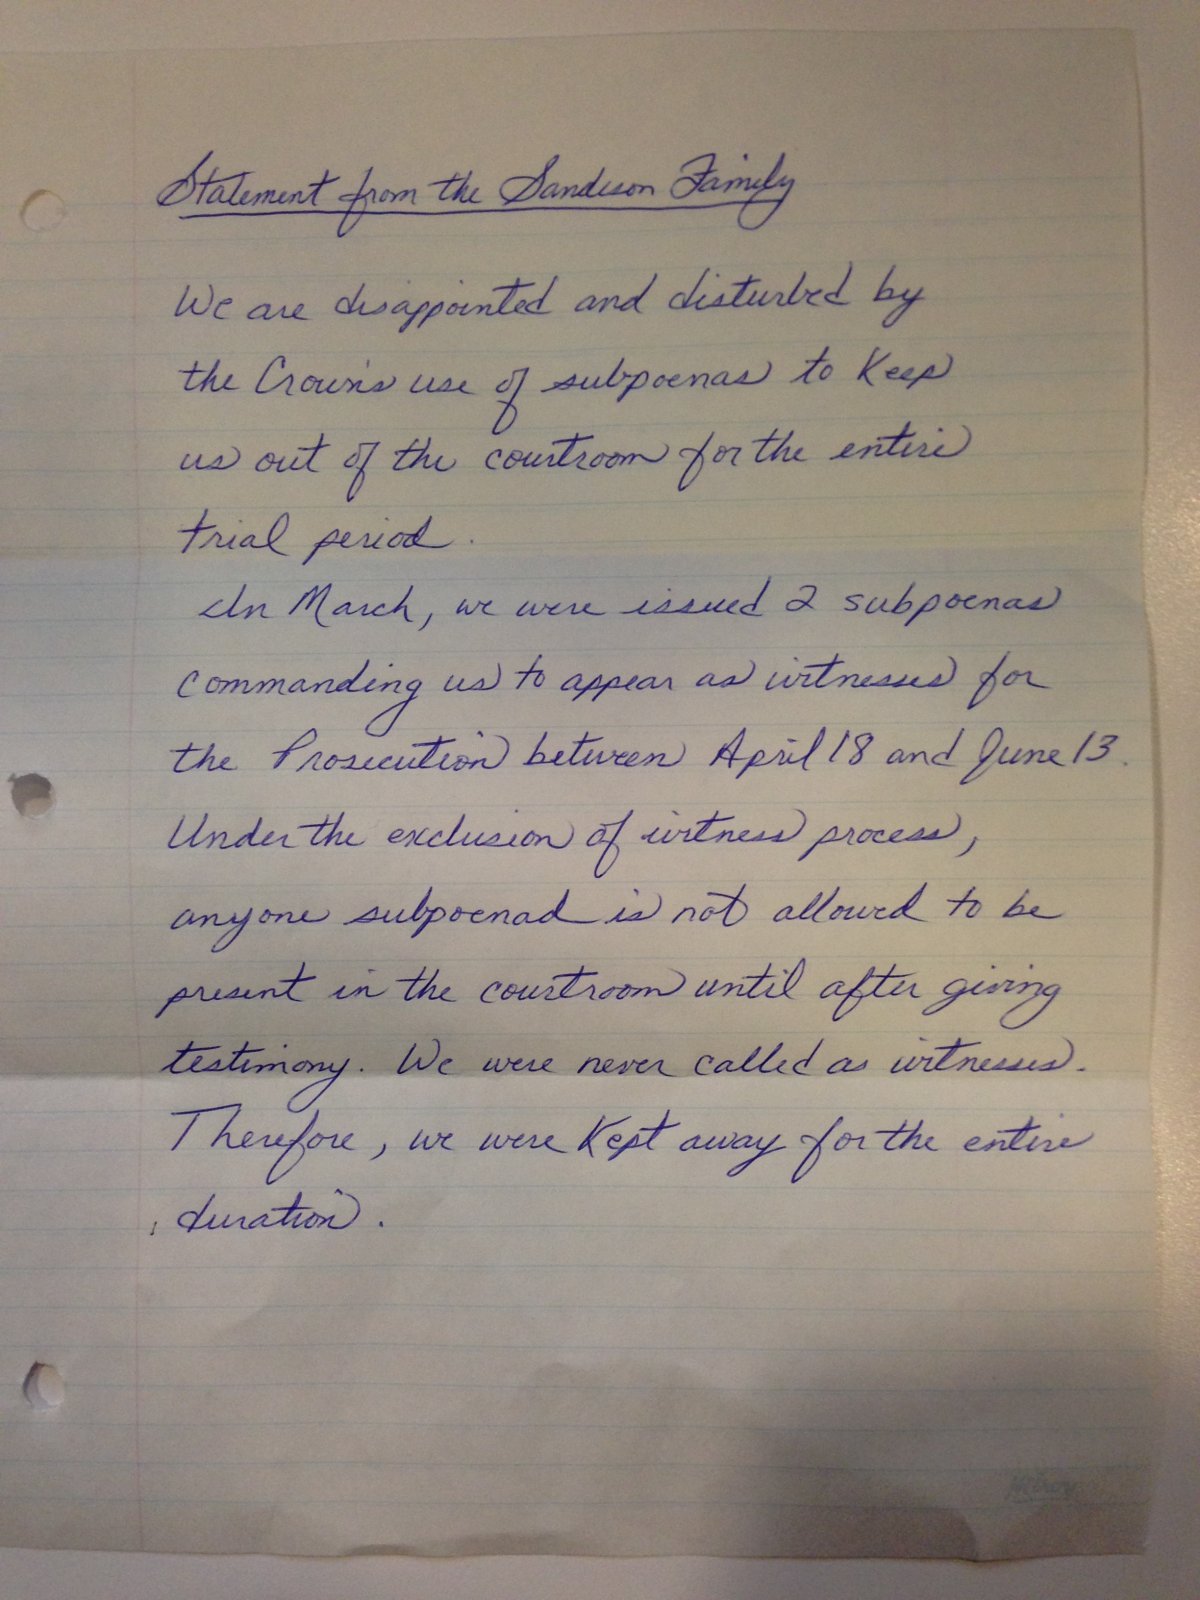 Statement from the Sandison Family
We are disappointed and disturbed by
the Crown's use of subpoenas to Keep
us out of the courtroom for the entire
trial period.
In March, we were issued 2 subpoenas
commanding us to appear as witnesses for
the Prosecution between April 18 and June 13.
Under the exclusion of witness process,
anyone subpoenad is not allowed to be
present in the courtroom until after giving
testimony. We were never called as witnesses.
Therefore, we were Kept away for the entire
duration.